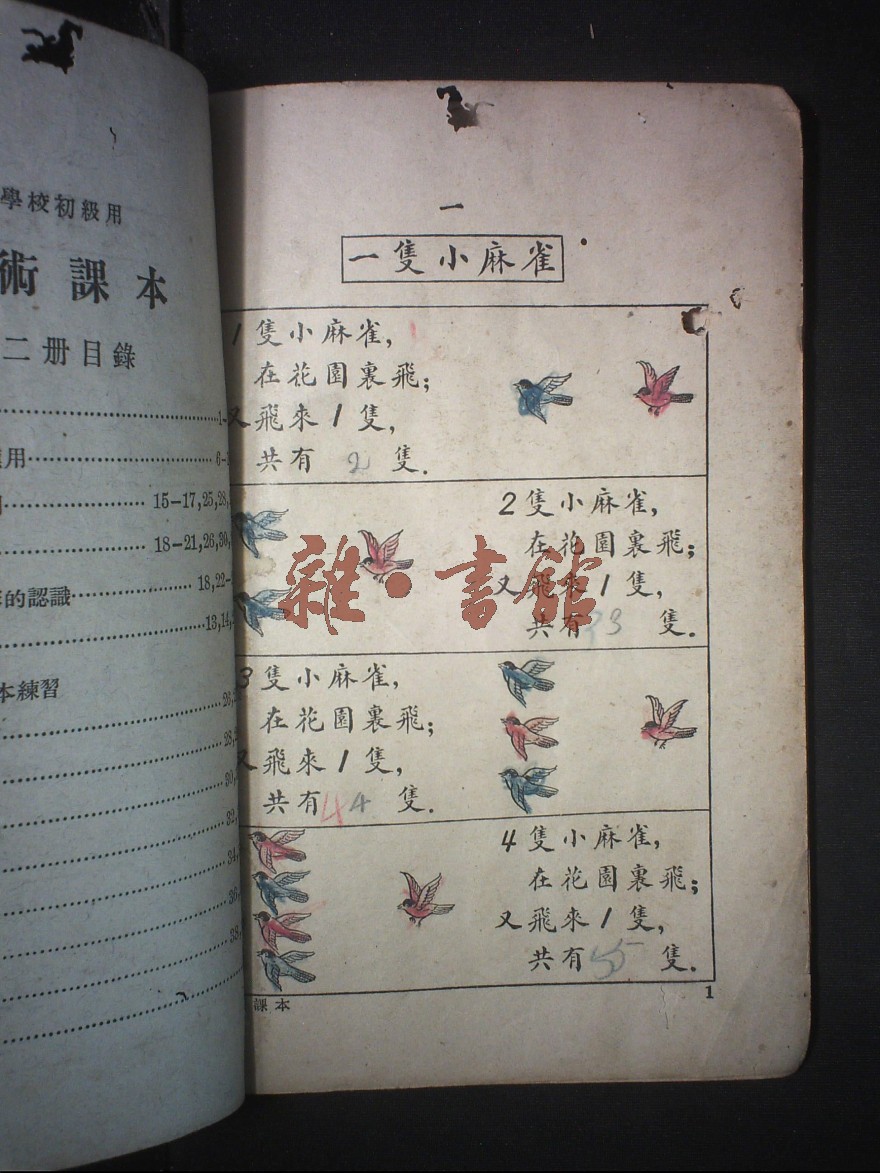 學校初級用
術課本
二册目錄
1-
用 6-
15-17,25,28,
18-21,26,30,
的認識 18,22-
13,14,
本練習
26,
28,
30,
32,
34,
36,
38,
一
一隻小麻雀
1隻小麻雀,
在花園裏飛;
又飛來1隻,
共有 2 隻.
2隻小麻雀,
在花園裏飛;
又飛來1隻,
共有 33 隻.
3隻小麻雀,
在花園裏飛;
又飛來1隻,
共有 44 隻.
4隻小麻雀,
在花園裏飛;
又飛來1隻,
共有 55 隻.
課本
1
雜·書館